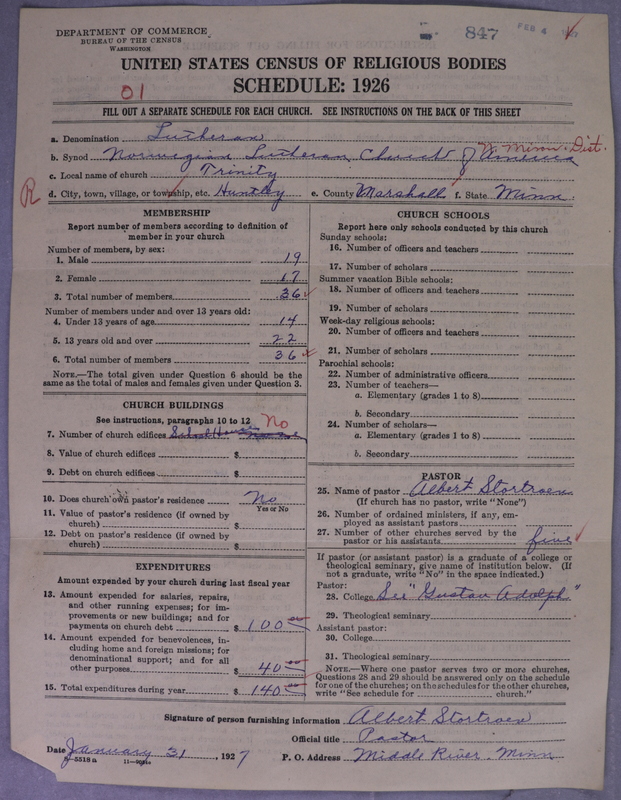 DEPARTMENT OF COMMERCE
BUREAU OF THE CENSUS
WASHINGTON
847
FEB 4
UNITED STATES CENSUS OF RELIGIOUS BODIES
SCHEDULE: 1926
01
FILL OUT A SEPARATE SCHEDULE FOR EACH CHURCH. SEE INSTRUCTIONS ON THE BACK OF THIS SHEET
a. Denomination Lutheran
b. Synod Norwegian Lutheran Church of America N. Minn. Dist.
c. Local name of church Trinity
R
d. City, town, village, or township, etc. Huntley e. County Marshall f. State Minn.
MEMBERSHIP
Report number of members according to definition of member in your church
Number of members, by sex:
1. Male 19
2. Female 17
3. Total number of members 36
Number of members under and over 13 years old:
4. Under 13 years of age 14
5. 13 years old and over 22
6. Total number of members 36
NOTE.—The total given under Question 6 should be the same as the total of males and females given under Question 3.
CHURCH BUILDINGS
See instructions, paragraphs 10 to 12
No
7. Number of church edifices School House
8. Value of church edifices $
9. Debt on church edifices $
10. Does church own pastor's residence No
Yes or No
11. Value of pastor's residence (if owned by church) $
12. Debt on pastor's residence (if owned by church) $
EXPENDITURES
Amount expended by your church during last fiscal year
13. Amount expended for salaries, repairs, and other running expenses; for improvements or new buildings; and for payments on church debt $ 100.00
14. Amount expended for benevolences, including home and foreign missions; for denominational support; and for all other purposes $ 40.00
15. Total expenditures during year $ 140.00
CHURCH SCHOOLS
Report here only schools conducted by this church
Sunday schools:
16. Number of officers and teachers
17. Number of scholars
Summer vacation Bible schools:
18. Number of officers and teachers
19. Number of scholars
Week-day religious schools:
20. Number of officers and teachers
21. Number of scholars
Parochial schools:
22. Number of administrative officers
23. Number of teachers—
a. Elementary (grades 1 to 8)
b. Secondary
24. Number of scholars—
a. Elementary (grades 1 to 8)
b. Secondary
PASTOR
25. Name of pastor Albert Stortroen
(If church has no pastor, write "None")
26. Number of ordained ministers, if any, employed as assistant pastors
27. Number of other churches served by the pastor or his assistants five
If pastor (or assistant pastor) is a graduate of a college or theological seminary, give name of institution below. (If not a graduate, write "No" in the space indicated.)
Pastor:
28. College See "Gustav Adolph"
29. Theological seminary
Assistant pastor:
30. College
31. Theological seminary
NOTE.—Where one pastor serves two or more churches, Questions 28 and 29 should be answered only on the schedule for one of the churches; on the schedules for the other churches, write "See schedule for church."
Signature of person furnishing information Albert Stortroen
Official title Pastor
Date January 31, 1927 P. O. Address Middle River, Minn
5518a